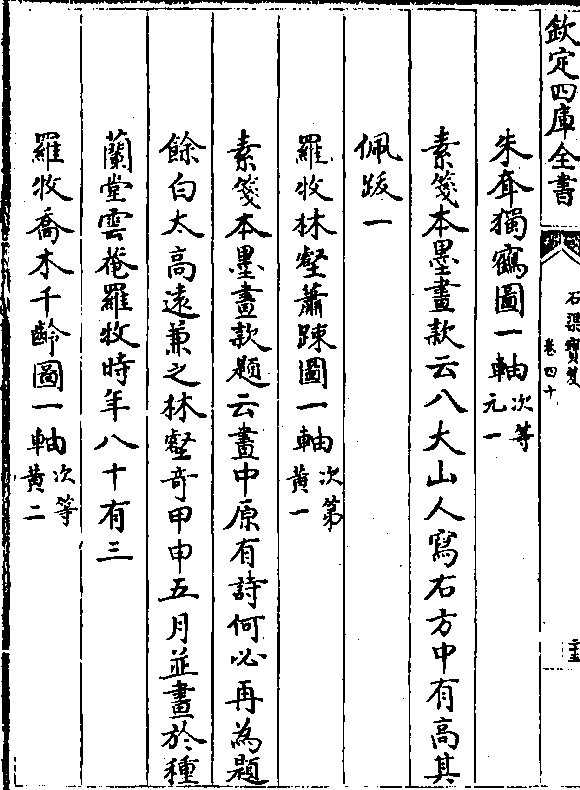 欽定四庫全書
石渠寶笈
卷四十
朱耷獨鶴圖一軸次等元一
素箋本墨畫款云八大山人寫右方中有高其
佩跋一
羅牧林壑蕭踈圖一軸次第黄一
素箋本墨畫款題云畫中原有詩何必再為題
餘白太高遠兼之林壑竒甲申五月並畫於種
蘭堂雲菴羅牧時年八十有三
羅牧喬木千齡圖一軸次等黄二